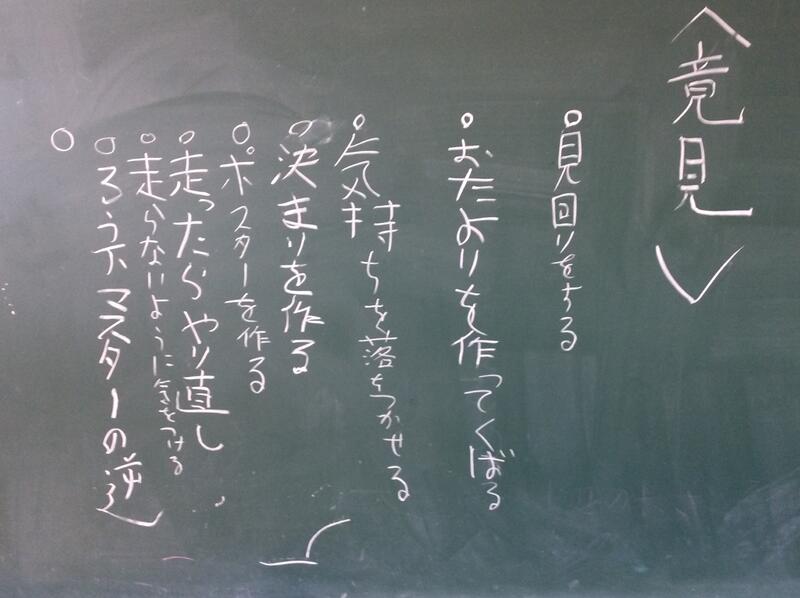 〈意見〉
○見回りをする
○おたよりを作ってくばる
○気持ちを落ちつかせる
○決まりを作る
○ポスターを作る
○走ったらやり直し
○走らないように気をつける
○ろうかマスターの逆
○